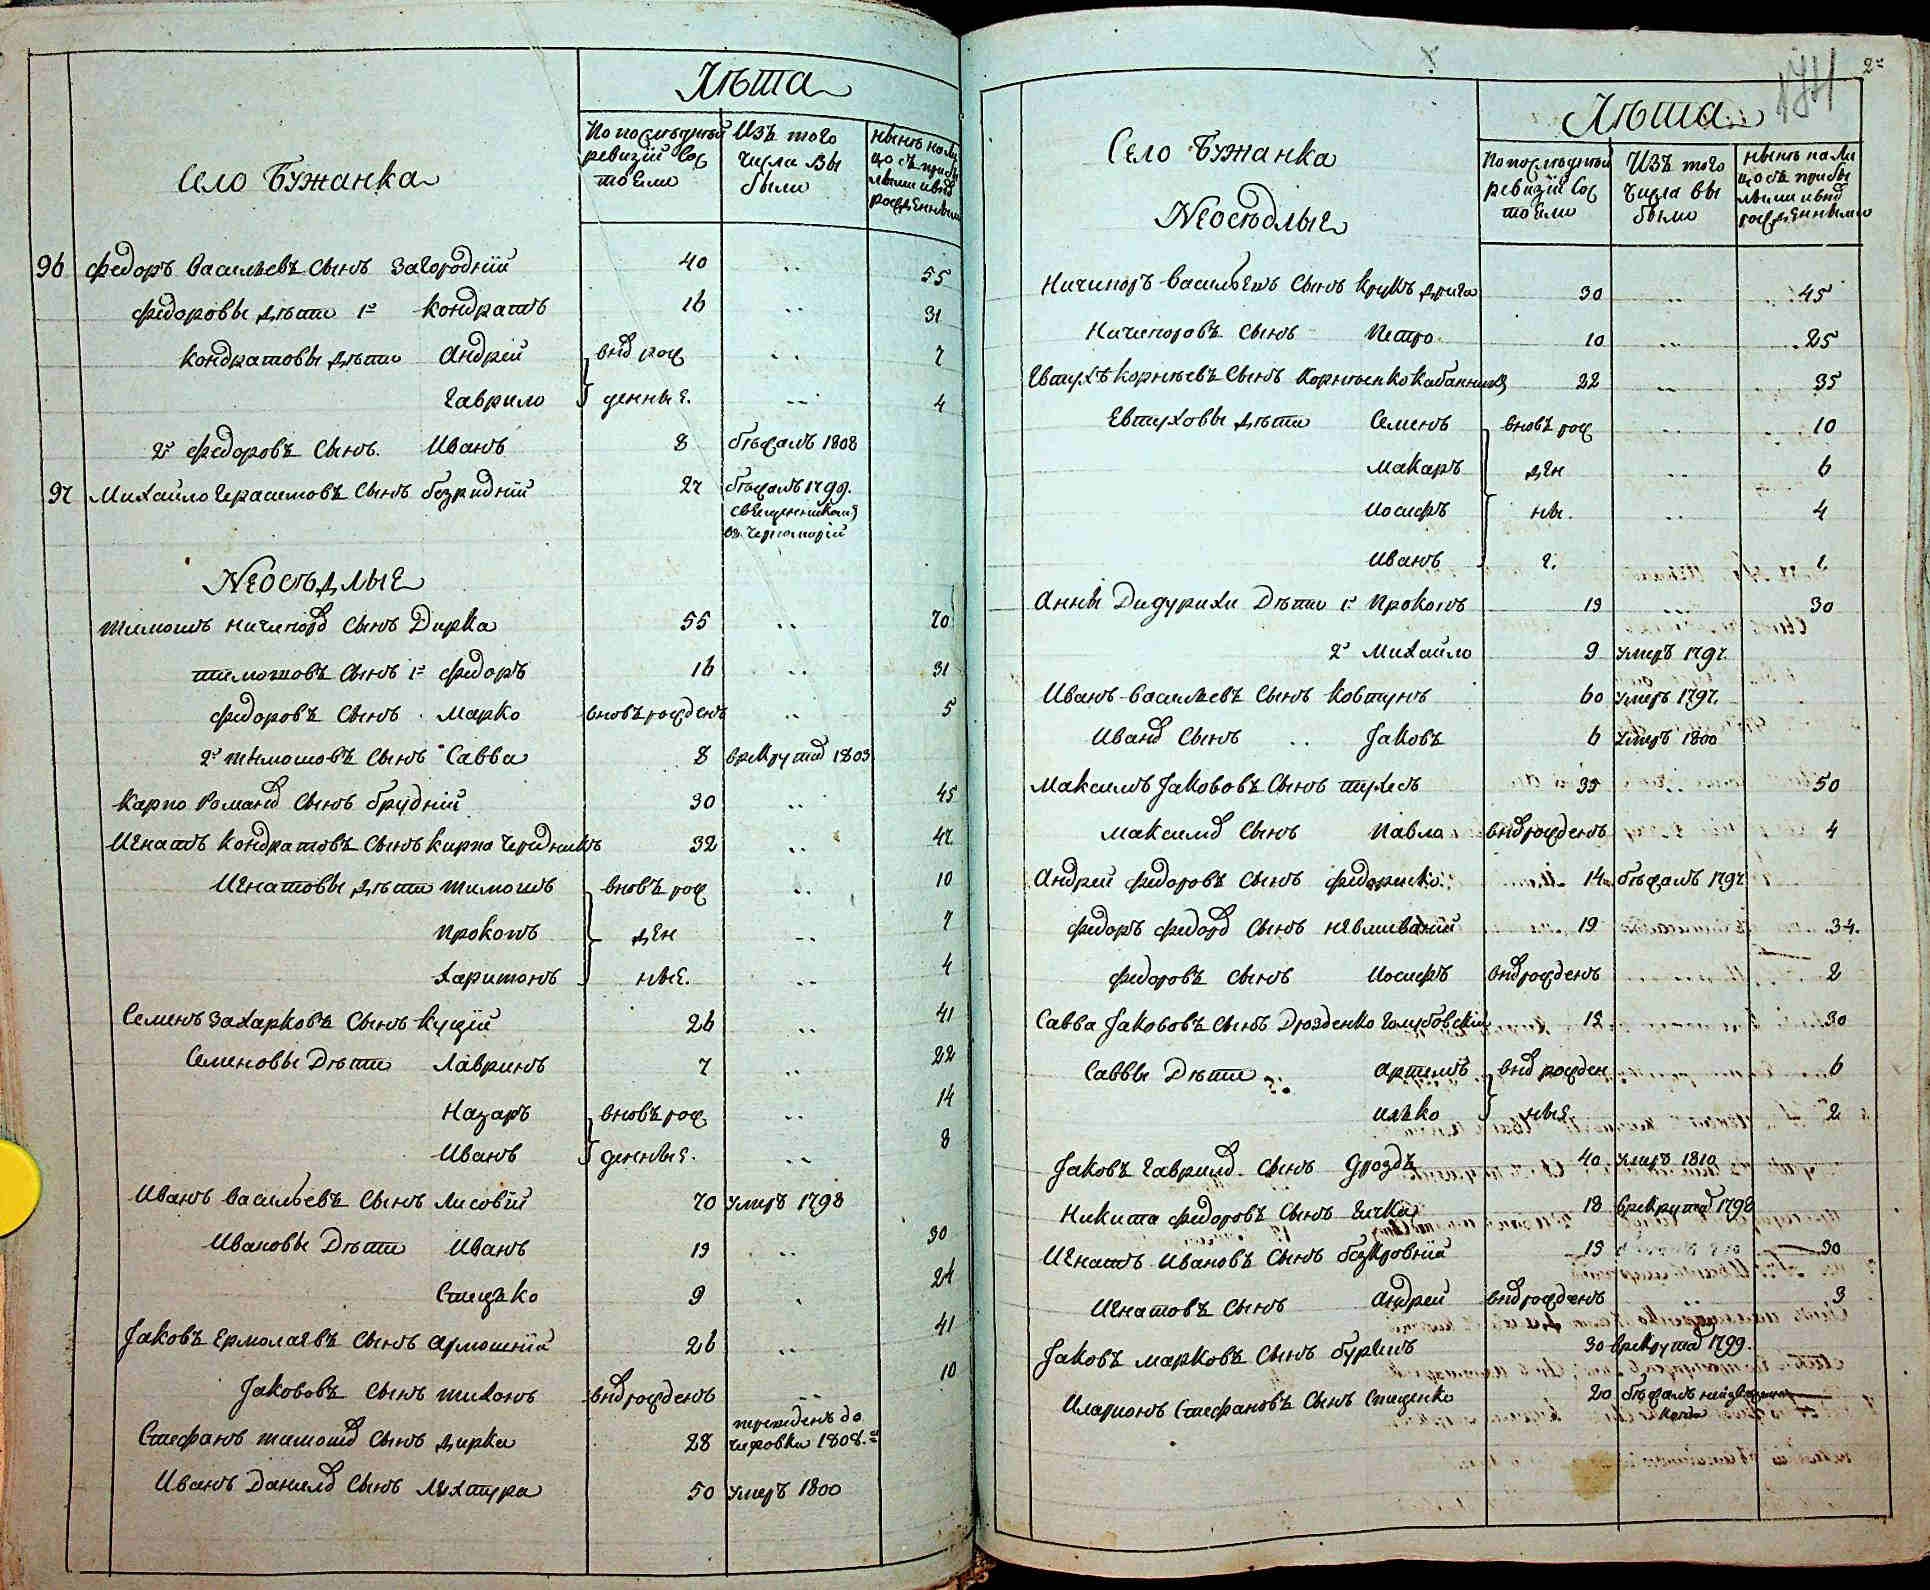 Лѣта
Село Бужанка
По последней ревизіи состояли
Изъ того числа выбыли
Нынѣ налицо съ прибылыми и вновь рожденными
96 Федоръ Васильевъ сынъ Загородній 40 .. 55
Федоровы дѣти 1й Кондратъ 16 .. 31
Кондратовы дѣти Андрей вновь рож .. 7
Гаврило денные. .. 4
2й Федоровъ сынъ Иванъ 8 бѣжалъ 1808
97 Михайло Герасимовъ сынъ безридній 27 бѣжалъ 1799.
священникомъ
въ Черноморій
Неосѣдлые
Тимошъ Ничипоровъ сынъ Дирка 55 .. 70
Тимошовъ сынъ 1й Федоръ 16 .. 31
Федоровъ сынъ Марко вновь рожденъ .. 5
2й Тимошовъ сынъ Савва 8 в рекрутахъ 1803
Карпо Романовъ сынъ брудній 30 .. 45
Игнатъ Кондратовъ сынъ Кирпа Чередникъ 32 .. 47
Игнатовы дѣти Тимошъ вновь рож .. 10
Прокопъ ден .. 7
Харитонъ ные. .. 4
Семенъ Захарковъ сынъ Куцій 26 .. 41
Семеновы Дѣти Лавринъ 7 .. 22
Назаръ вновь рож .. 14
Иванъ денные. .. 8
Иванъ Васильевъ сынъ Лисовій 70 умеръ 1798
Ивановы Дѣти Иванъ 15 .. 30
Стецько 9 . 24
Яковъ Ермолаевъ сынъ Ярмошній 26 .. 41
Якововъ сынъ Тихонъ вновь рожденъ .. 10
Стефанъ Тимошовъ сынъ Дирка 28 переведенъ до
Чижовки 1808.го
Иванъ Даниловъ сынъ Лихтура 50 умеръ 1800
2й
174
Лѣта
Село Бужанка
Неосѣдлые
По последней ревизіи состояли
Изъ того числа выбыли
Нынѣ налицо съ прибылыми и вновь рожденными
Ничипоръ Васильевъ сынъ Крукъ Дрига 30 .. 45
Ничипоровъ сынъ Петро 10 .. 25
Евтухъ Корнѣевъ сынъ Корнѣенко Кабанникъ 22 .. 35
Евтуховы дѣти Семенъ вновь рож .. 10
Макаръ ден .. 6
Иосифъ ны. .. 4
Иванъ е. 1
Анны Дидурихи Дѣти 1й Прокопъ 15 .. 30
2й Михайло 9 умеръ 1797.
Иванъ Васильевъ сынъ Ковтунъ 60 умеръ 1797.
Ивановъ сынъ .. Яковъ 6 умеръ 1800
Максимъ Якововъ сынъ Тихъ 35 50
Максимовъ сынъ Павло вновь рожденъ 4
Андрей Федоровъ сынъ Федоренко 14 бѣжалъ 1797
Федоръ Федоровъ сынъ невмиваній 19 34.
Федоровъ сынъ Иосифъ вновь рожденъ 2
Савва Якововъ сынъ Дрозденко Голубовскій 15 30
Саввы Дѣти Артемъ вновь рожден 6
Илько ные 2
Яковъ Гавриловъ сынъ Дроздъ 40 умеръ 1810
Никита Федоровъ сынъ Гичка 18 в рекрутахъ 1798
Игнатъ Ивановъ сынъ безкровній 15 30
Игнатовъ сынъ Андрей вновь рожденъ 3
Яковъ Марковъ сынъ бурилъ 30 в рекрутахъ 1799.
Иларионъ Стефановъ сынъ Стиценко 20 бѣжалъ неизвестно
когда